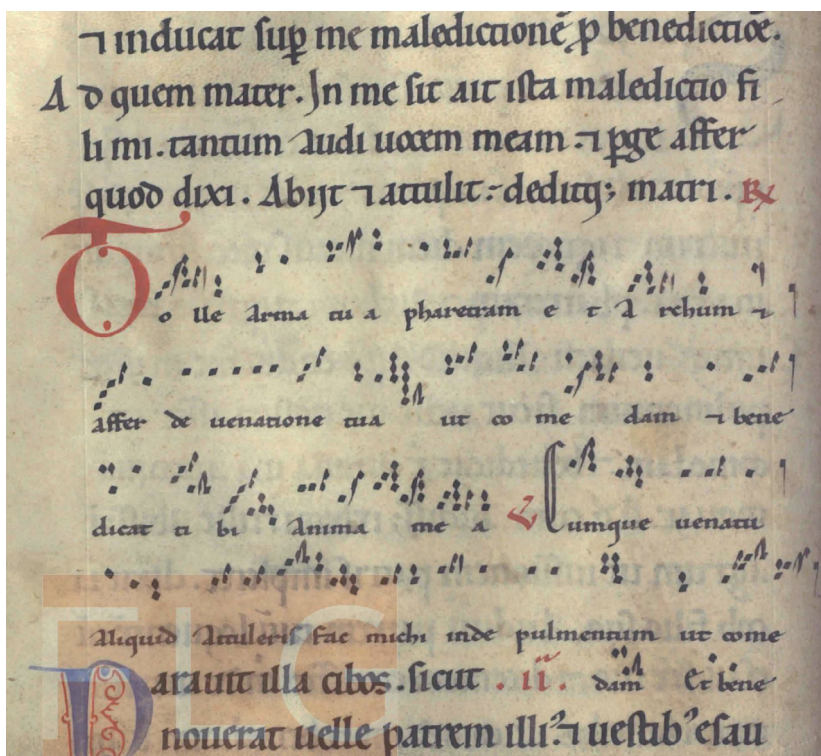 ⁊ inducat sup̱ me maledictionē p̱ benedictiōe.
Ad quem mater. In me sit ait ista maledictio fi
li mi. tantum audi uocem meam ⁊ p̱ge affer
quod dixi. Abijt ⁊ attulit. deditq; matri. ℟
Tolle arma tua pharetram et archum ⁊
affer de uenatione tua ut comedam ⁊ bene
dicat tibi anima mea ℣ Cumque uenatu
aliquid attuleris fac michi inde pulmentum ut come
Parauit illa cibos. sicut .ii. dam Et bene
nouerat uelle patrem illiꝰ. ⁊ uestibꝰ esau